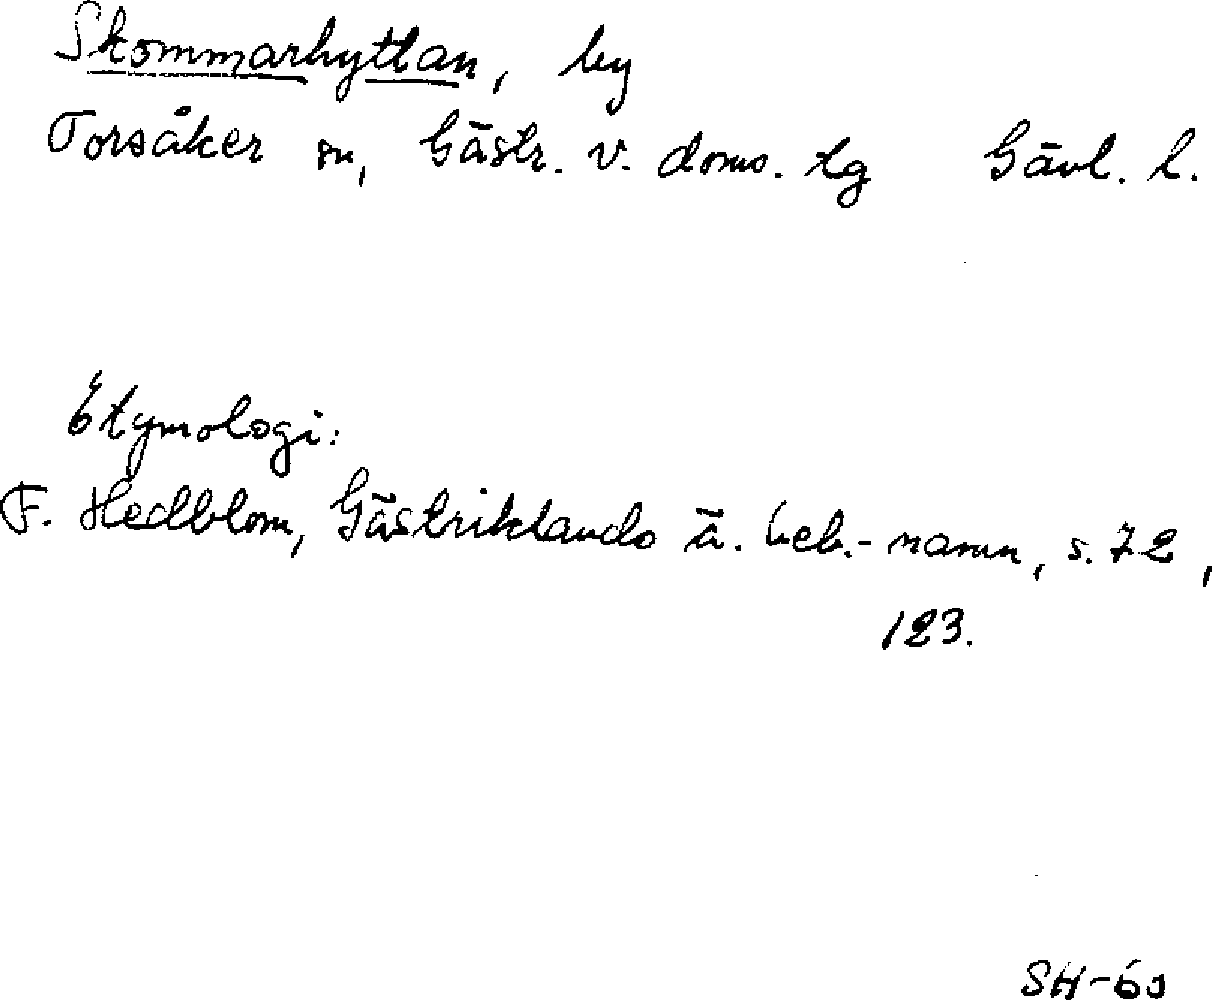 Skommarhyttan, by
Torsåker sn, Gästr. v. doms. tg Gävl. l.
Etymologi:
F. Hedblom, Gästriklands ä. beb.-namn, s. 72,
123.
SH-60